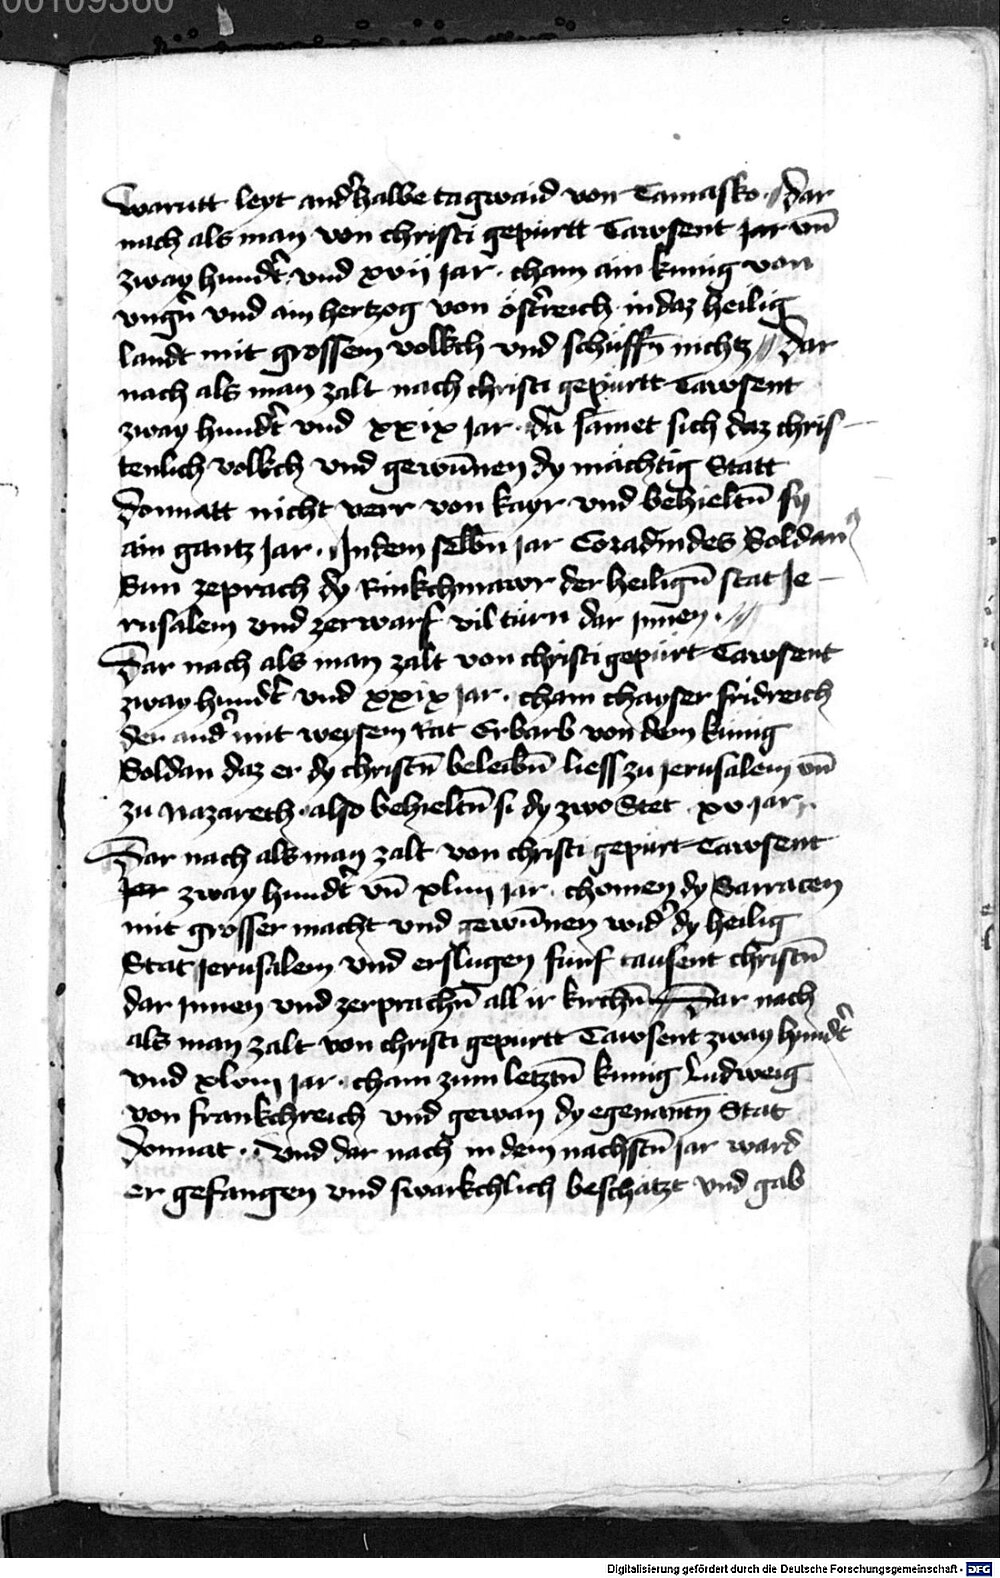 00109360
warutt leyt and̉halbe tagwaid von Tamasko · // Dar
nach als man von christi gepurtt Tawsent Jar vn̄
zway hundt̉ · vnd xvij Jar · cham ain kunig von
vngn̉ vnd ain hertzog von öst̉reich in daz heilig
landt mit grossem volkch vnd schuffn̄ nichtz // Dar
nach als man zalt nach christi gepurtt Tawsent
zway hundt̉ vnd xxix Jar · da samet sich daz chris
tenlich volkch vnd gewūnen dy mächtig Statt
Domiatt nicht verr von kayr vnd behieltn̄ sy
ain gantz Jar · Jn dem selbn̄ Jar Coradin des Soldan
Sun zeprach dy Rinkchmawr der heilign̄ stat Je
rusalem vnd zerwarf vil turn dar Jnnen · //
Dar nach als man zalt von christi gepürt Tawsent
zway hundt̉ vnd xxix Jar · cham chayser fridreich
der and̉ mit weysem Rat Erbarb von dem kunig
Soldan daz er dy christn̄ beleibn̄ liess zu Jerusalem vn̄
zu Nazareth · also behieltn̄ si dy zwo Stet · xv Jar ·
Dar nach als man zalt von christi gepürt Tawsent
Jar zway hundt̉ vn̄ xliiij Jar · chomen dy Sarracen
mit grosser macht vnd gewūnen wid̉ dy heilig
Stat Jerusalem vnd erslugen funf tausent christn̄
dar Jnnen vnd zerprachn̄ all ir kirchn̄ // Dar nach
als man zalt von christi gepurtt Tawsent zway hundt̉
vnd xlviij Jar · cham zum letztn̄ kunig Ludweig
von frankchreich vnd gewan dy egenantn̄ Stat
Domiat · vnd dar nach in dem nachstn̄ Jar ward
er gefangen vnd swarkchlich beschatzt vnd gab
Digitalisierung gefördert durch die Deutsche Forschungsgemeinschaft - DFG